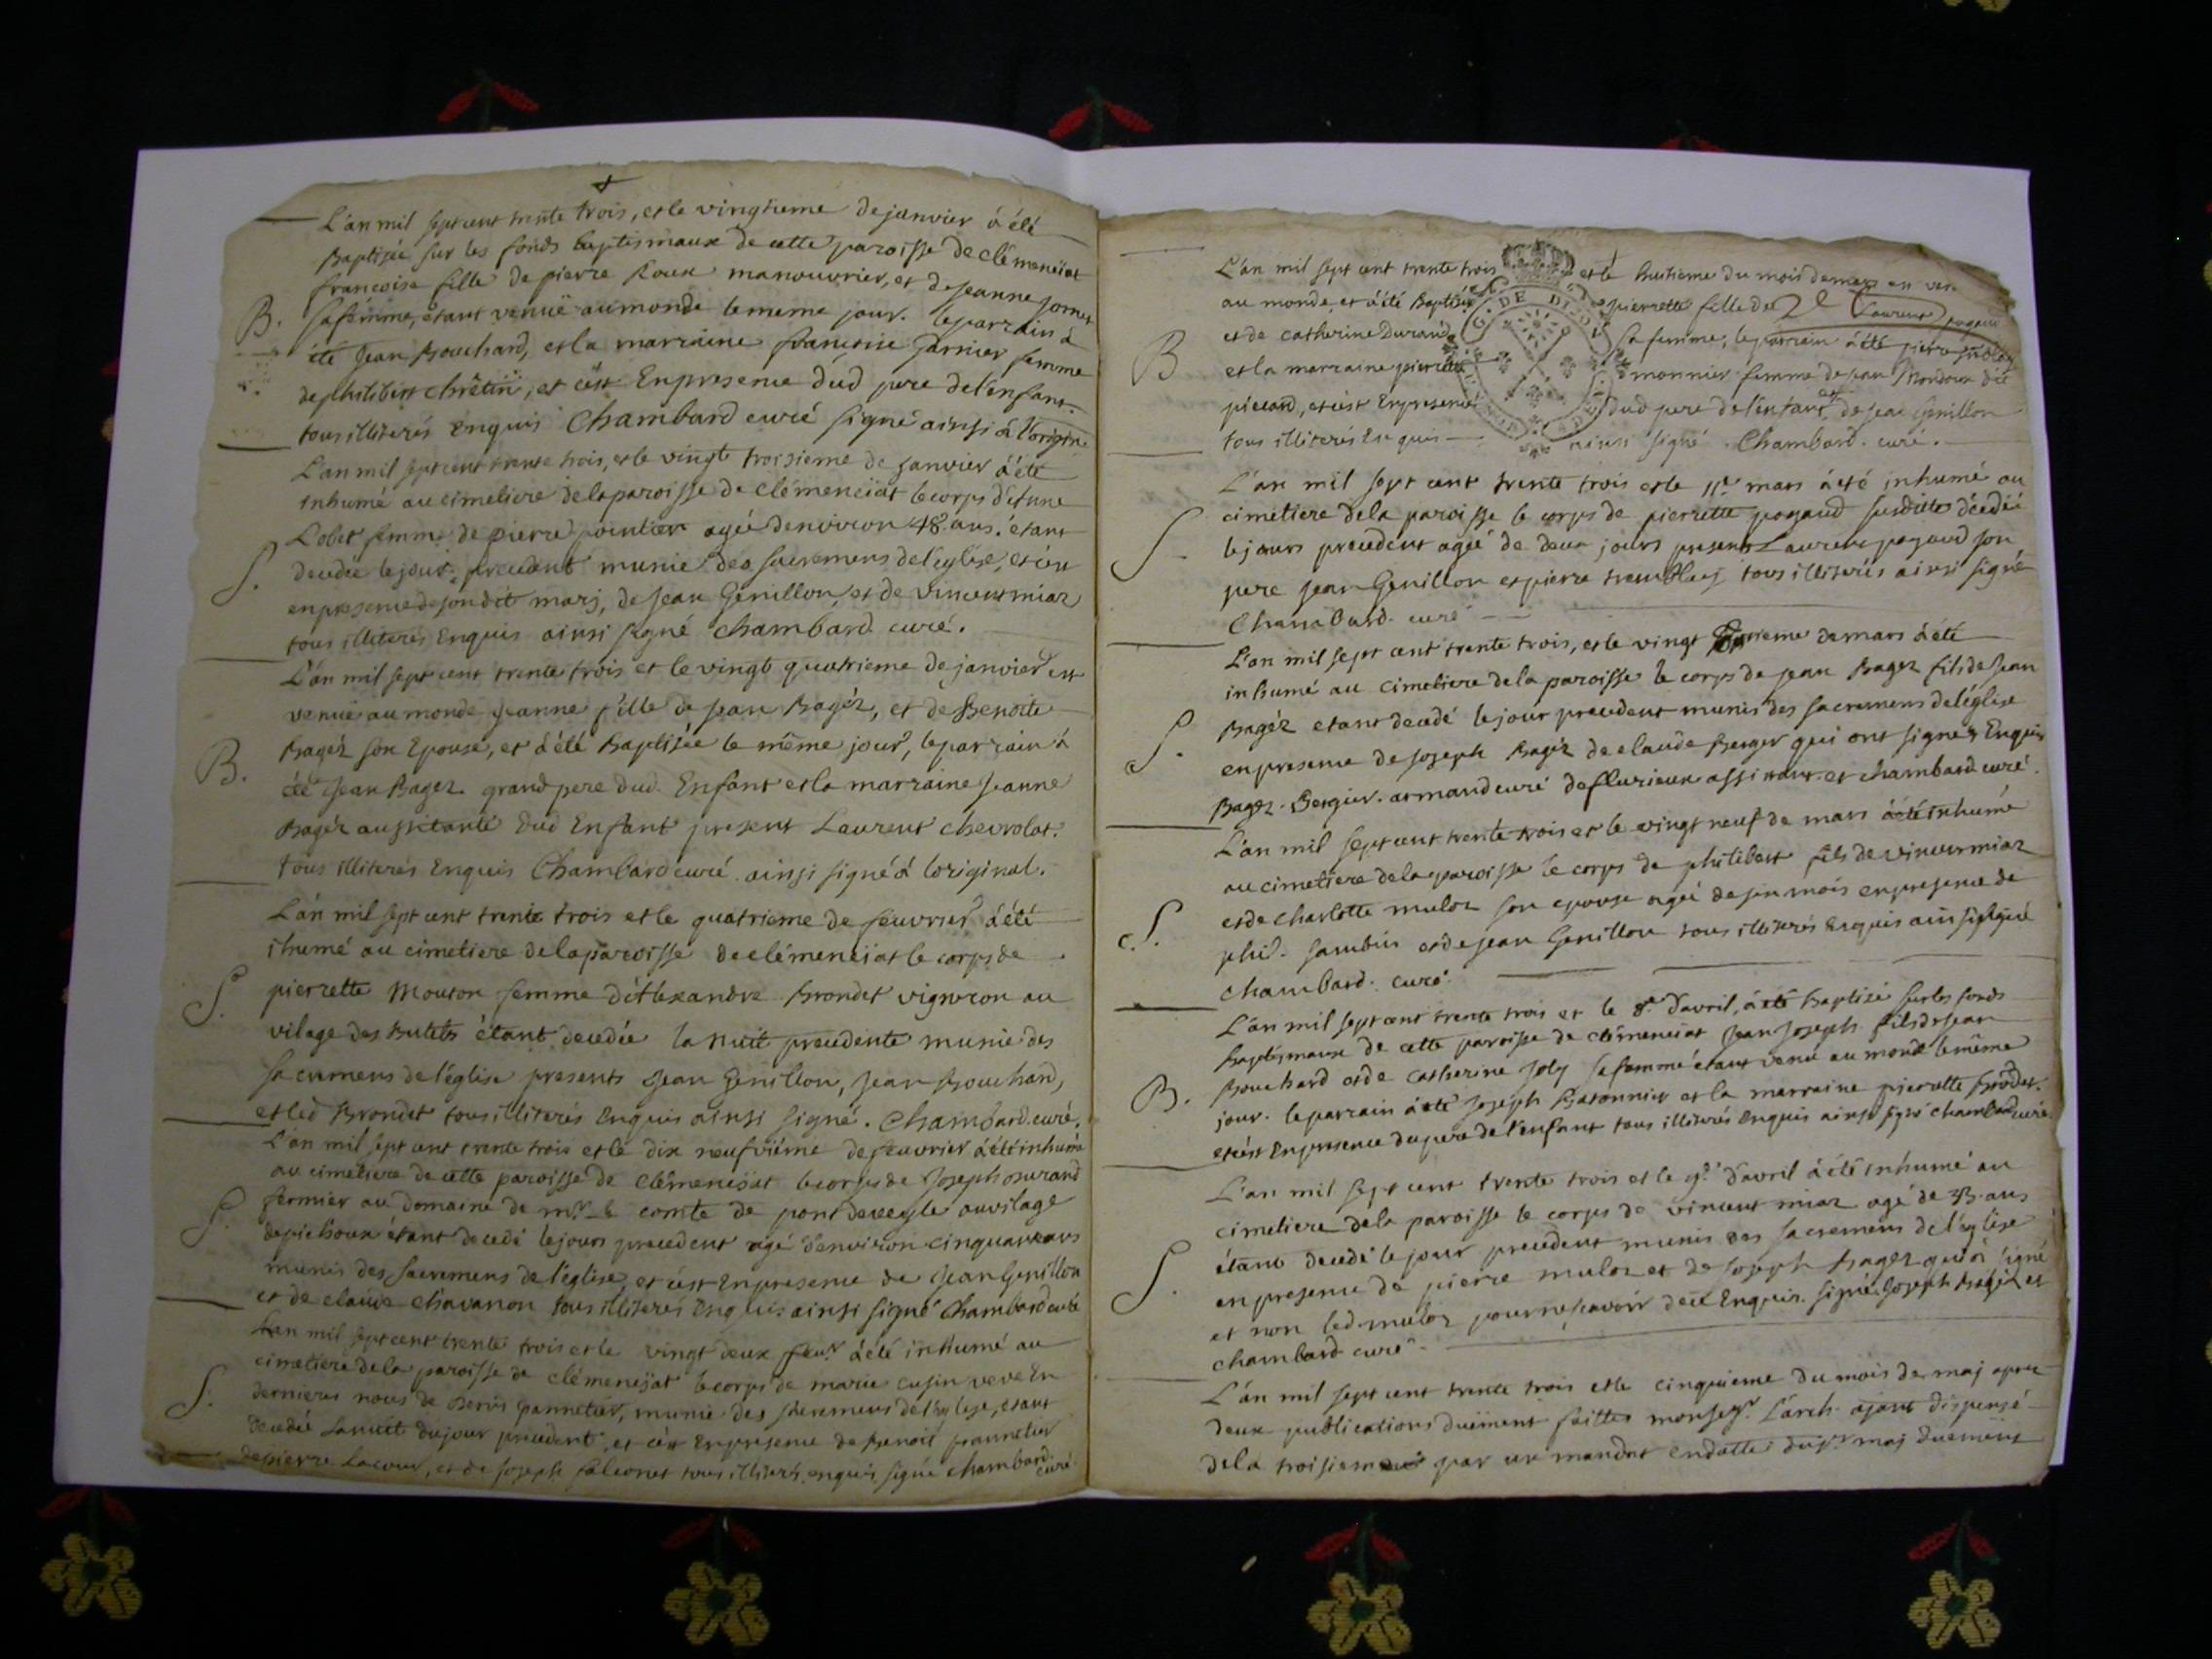 L'an mil sept cent trente trois, et le vingtieme de janvier à été
Baptisée sur les fonds baptismaux de cette paroisse de clémenciat
francoise fille de pierre Roux manouvrier, et de jeanne
B. sa fémme, étant venuë au monde le meme jour. le parrain à
été Jean Bouchard, et la marraine francoise Garnier femme
de philibert chrêtin, et c'est Enpresence dud pere de l'enfant.
tous illiterés Enquis Chambard curé signé ainsi à l'origine
L'an mil sept cent trente trois, et le vingt troisieme de janvier à été
inhumé au cimetiere de la paroisse de Clémenciat le corps d'
Lobet femme de pierre agée denviron 48 ans. étant
S. decedée le jour precedent munie des sacremens de l'eglise, et c'est
enpresence de son dit marj, de Jean Génillon, et de vincent miaz
tous illiterés Enquis ainsi signé Chambard curé.
L'an mil sept cent trente trois et le vingt quatrieme de janvier est
venuë au monde Jeanne fille de Jean Bagéz, et de Benoite
B. Bagéz son Epouse, et à été Baptisée le même jour, le parrain à
été Jean Bagez grand pere dud. Enfant et la marraine Jeanne
Bagéz aussi tante dud Enfant present Laurent chevrolat.
tous illiterés Enquis Chambard curé ainsi signé à loriginal.
L'an mil sept cent trente trois et le quatrieme de feuvrier à été
ihumé au cimetiere de la paroisse de clémenciat le corps de
S. pierrette Mouton femme d'Alexandre Brondet vigneron au
vilage des Butets étant decedée la nuit precedente munie des
sacremens de l'église presents Jean Genillon, Jean Bouchard,
et led Brondet tous illiterés Enquis ainsi signé. Chambard curé.
L'an mil sept cent trente trois et le dix neufviéme de feuvrier à été inhumé
au cimetiere de cette paroisse de Clémenciat le corps de Joseph Durand
S. fermier au domaine de mr. le comte de pontdeveyle au vilage
de pichoux étant decedé le jour precedent agé d'environ cinquante ans
munis des sacremens de l'église, et c'est Enpresence de Jean Genillon
et de claude chavanon tous illiterés Enquis ainsi signé Chambard curé
L'an mil sept cent trente trois et le vingt deux feuvr. à été inhumé au
cimetiere de la paroisse de clémenciat le corps de marie cusin veve En
S. dernieres noces de Denis pannetier, munie des sacremens de l'eglise, étant
decedée la nuit du jour precedent, et c'est Enpresence de Benoit pannetier
de pierre Lacour, et de Joseph falconet tous illiterés, enquis signé Chambard.
curé.
L'an mil sept cent trente trois et le huitieme du mois de mars en ven
au monde, et à été Baptisée pierrette fille de Laurent pagaud
et de catherine Durand sa femme, le parrain à été pierre
B et la marraine pierrette monnier femme de Jean Mondoux dit
picard, et c'est Enpresence dud pere de l'enfant et de Jean Génillon
tous illiterés Enquis ainsi signé Chambard. curé.
L'an mil sept cent trente trois et le 11e. mars à été inhumé au
cimetiere de la paroisse le corps de pierrette pagaud susditte décédée
S. le jours precedent agée de deux jours present Laurent pagaud son
pere Jean Genillon et pierre tremblay tous illiterés ainsi signé
Chambard. curé
L'an mil sept cent trente trois, et le vingt de mars à été
inhumé au cimetiere de la paroisse le corps de Jean Bagez fils de Jean
S. Bagéz étant decedé le jour precedent munis des sacremens de l'église
enpresence de Joseph Bagéz de claude Berger qui ont signés Enquis
Bagez. Bergier. armand curé de flurieux assistant et chambard curé.
L'an mil sept cent trente trois et le vingt neuf de mars à été inhumé
au cimetiere de la paroisse le corps de philibert fils de vincent miaz
S. et de charlotte muloz son epouse agé de six mois enpresence de
phil. sambin et de Jean Genillon tous illiterés Enquis ainsi signé
chambard. curé.
L'an mil sept cent trente trois et le 8e. d'avril, à été baptisé sur les fonds
Baptismaux de cette paroisse de clémenciat Jean Joseph fils de Jean
B. Bouchard et de catherine Joly sa femme étant venu au monde le même
jour. le parrain à été Joseph Batonnier et la marraine pierrette Brôdet.
et c'est Enpresence du pere de l'enfant tous illiterés Enquis ainsi signé chambard curé
L'an mil sept cent trente trois et le 9e. d'avril à été inhumé au
cimetiere de la paroisse le corps de vincent miaz agé de 33. ans
étant decedé le jour precedent munis des sacremens de l'église
S. enpresence de pierre muloz et de Joseph Bagez qui à signé
et non led. muloz pour ne sçavoir de ce Enquis. signé Joseph Bagéz et
chambard curé.
L'an mil sept cent trente trois et le cinquieme du mois de maj apres
deux publications duëment faittes monsegr. L'arch. ajant dispensé
de la troisieme par un mandat endatte du 1er maj duement